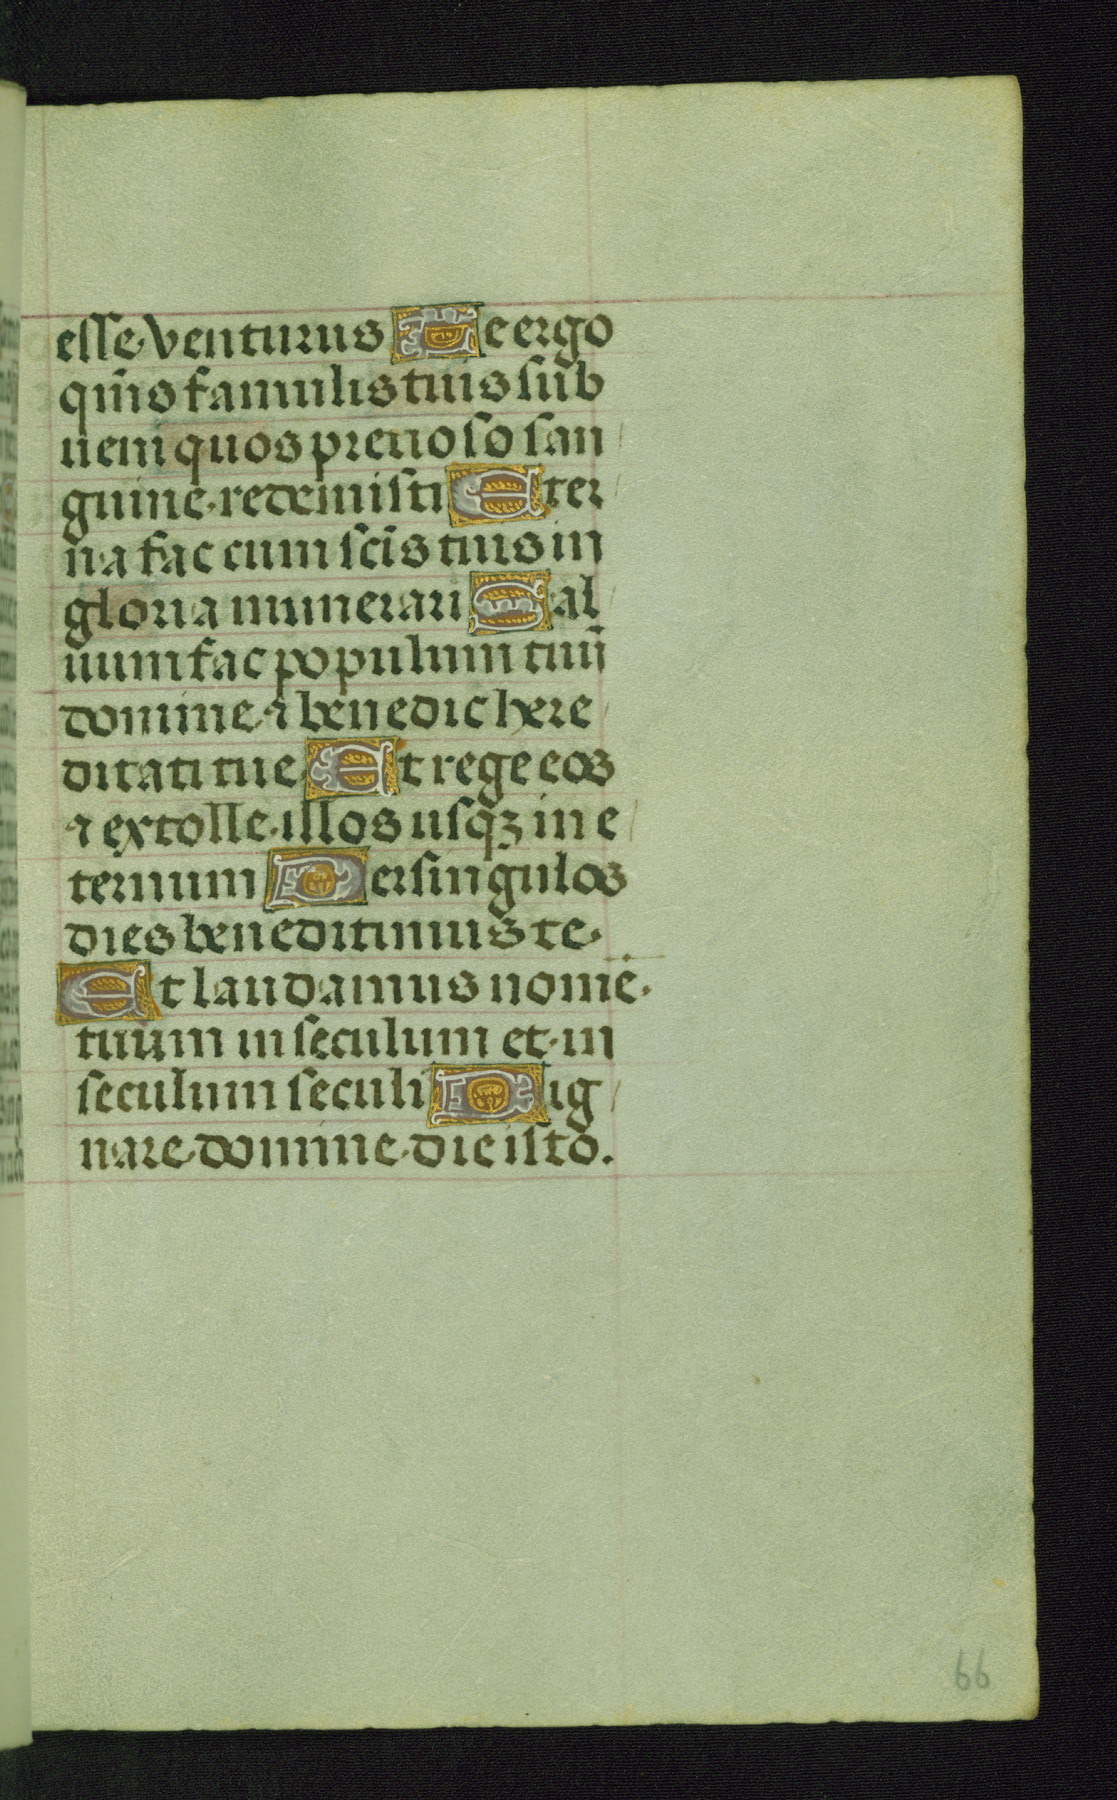 esse venturus Te ergo
qms̄ famulis tuis sub
ueni quos pretioso san
guine redemisti Eter
na fac cum sc̄is tuis in
gloria munerari Sal
uum fac populum tuū
domine ⁊ benedic here
ditati tue Et rege eos
⁊ extolle illos usqꝫ in e
ternum Per singulos
dies beneditimus te
Et laudamus nomē
tuum in seculum et in
seculum seculi Dig
nare domine die isto.
66